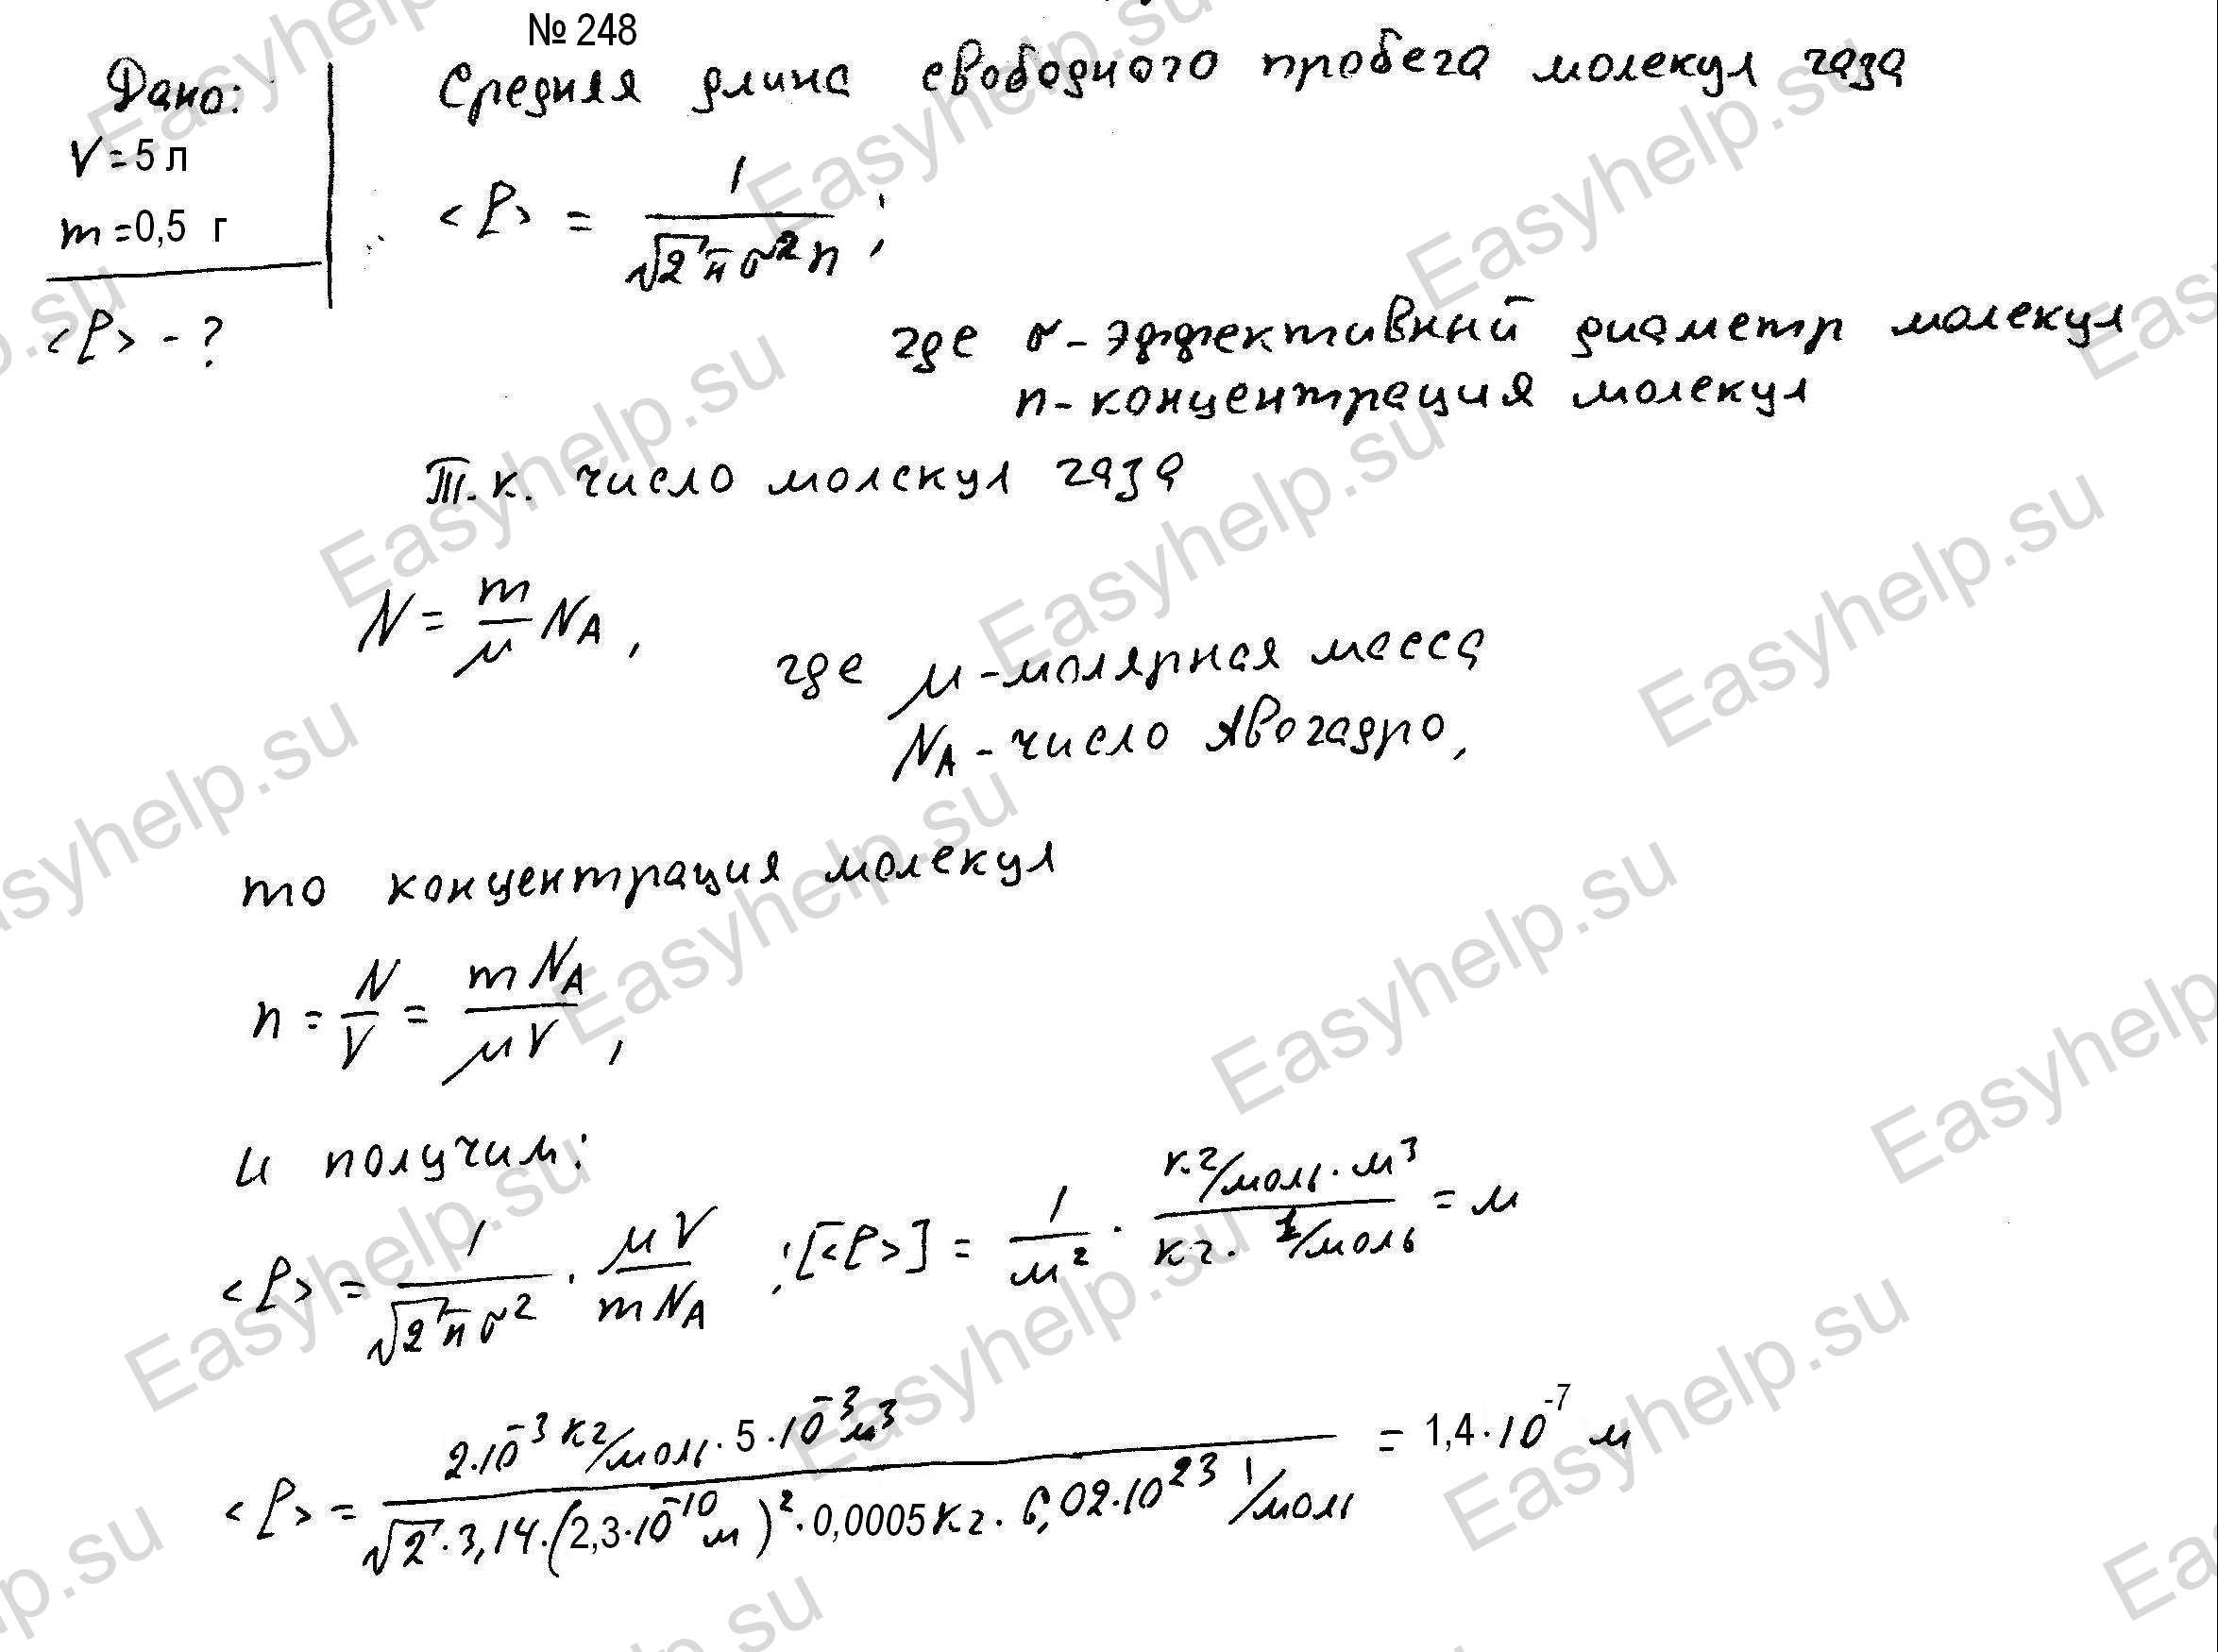 № 248
Дано:
V = 5 л
m = 0,5 г
<ℓ> - ?
Средняя длина свободного пробега молекул газа
<ℓ> = 1/(√2 π σ² n) ;
где σ - эффективный диаметр молекул
n - концентрация молекул
Т.к. число молекул газа
N = m/μ N_A ,
где μ - молярная масса
N_A - число Авогадро,
то концентрация молекул
n = N/V = m N_A/(μ V) ,
и получим:
<ℓ> = 1/(√2 π σ²) · μ V/(m N_A) ; [<ℓ>] = 1/м² · (кг/моль · м³)/(кг · 1/моль) = м
<ℓ> = (2·10⁻³ кг/моль · 5·10⁻³ м³)/(√2 · 3,14 · (2,3·10⁻¹⁰ м)² · 0,0005 кг · 6,02·10²³ 1/моль) = 1,4·10⁻⁷ м
Easyhelp.su